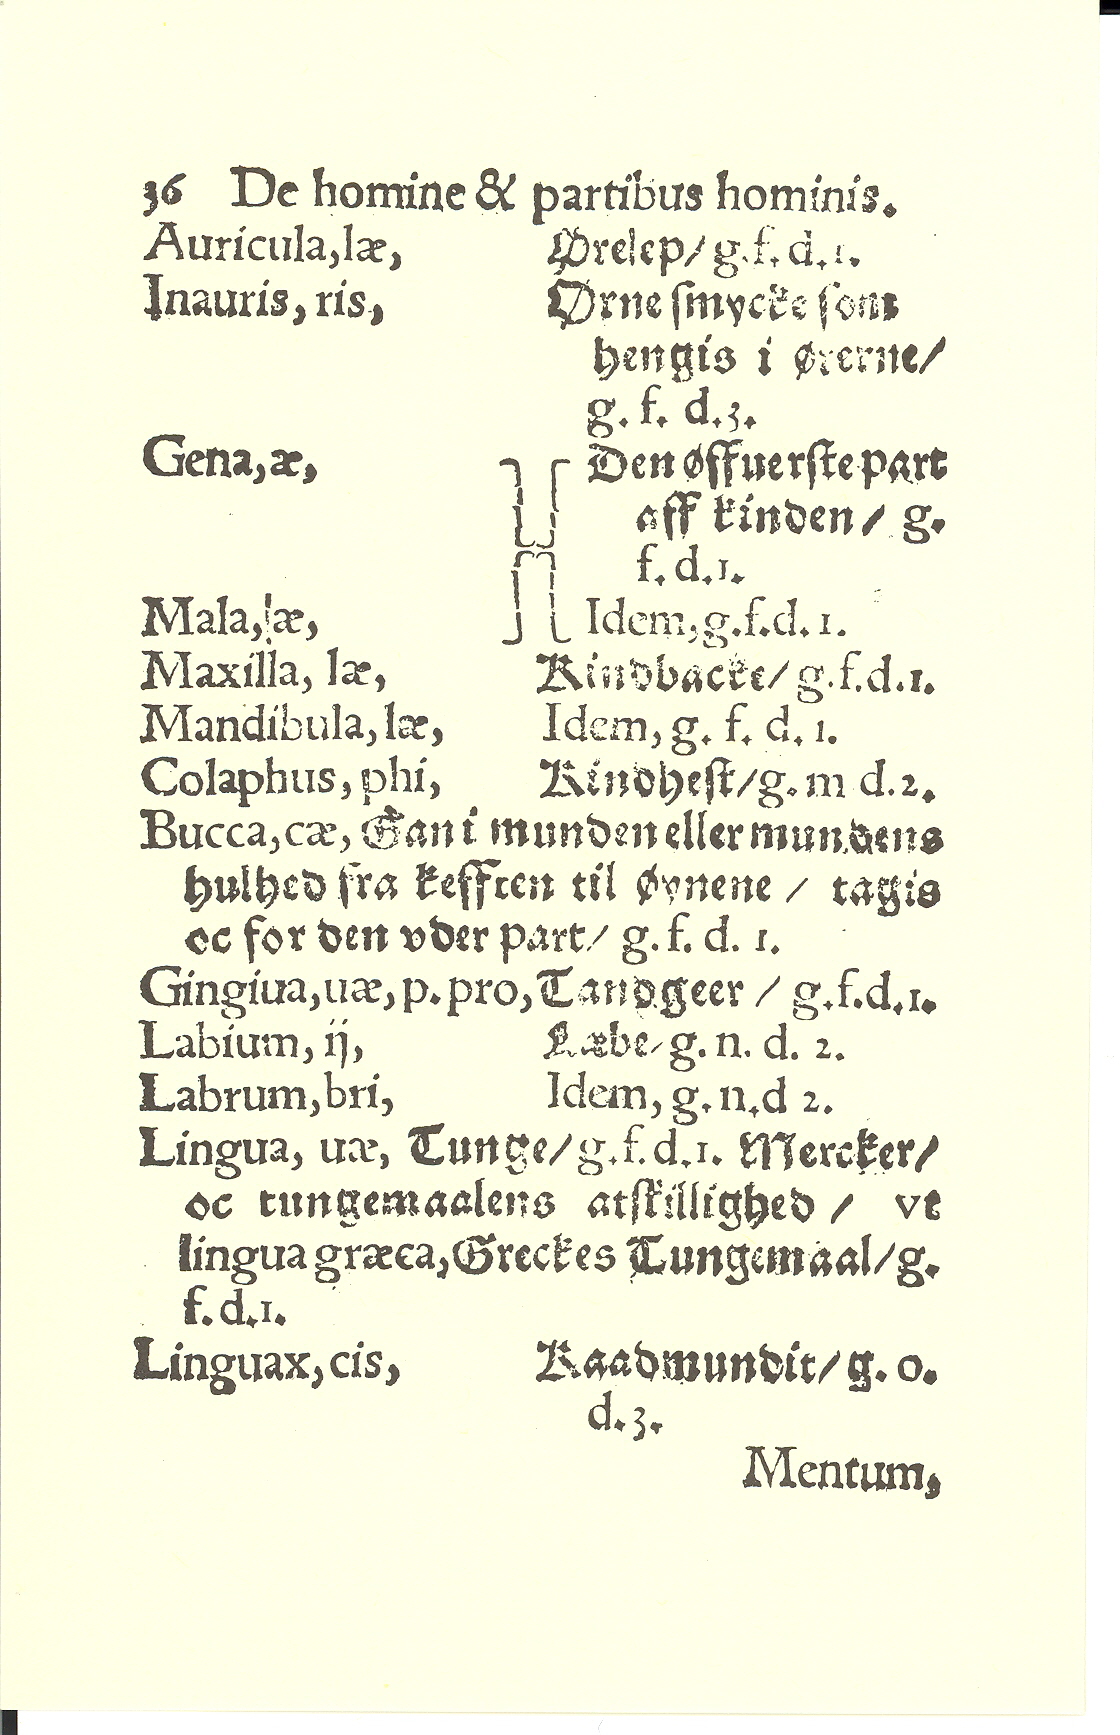 36 De homine & partibus hominis.
Auricula, læ, Ørelep/ g. f. d. 1.
Inauris, ris, Ørne smycke som
hengis i ørerne/
g. f. d. 3.
Gena, æ, Den øffuerste part
aff kinden/ g.
f. d. 1.
Mala, læ, Idem, g. f. d. 1.
Maxilla, læ, Kindbacke/ g. f. d. 1.
Mandibula, læ, Idem, g. f. d. 1.
Colaphus, phi, Kindhest/ g. m d. 2.
Bucca, cæ, Gan i munden eller mundens
hulhed fra kefften til øynene / tagis
oc for den vder part/ g. f. d. 1.
Gingiua, uæ, p. pro, Tandgeer / g. f. d. 1.
Labium, ij, Læbe/ g. n. d. 2.
Labrum, bri, Idem, g. n. d 2.
Lingua, uæ, Tunge/ g. f. d. 1. Mercker/
oc tungemaalens atskillighed / vt
lingua græca, Greckes Tungemaal/ g.
f. d. 1.
Linguax, cis, Raadmundit/ g. o.
d. 3.
Mentum,